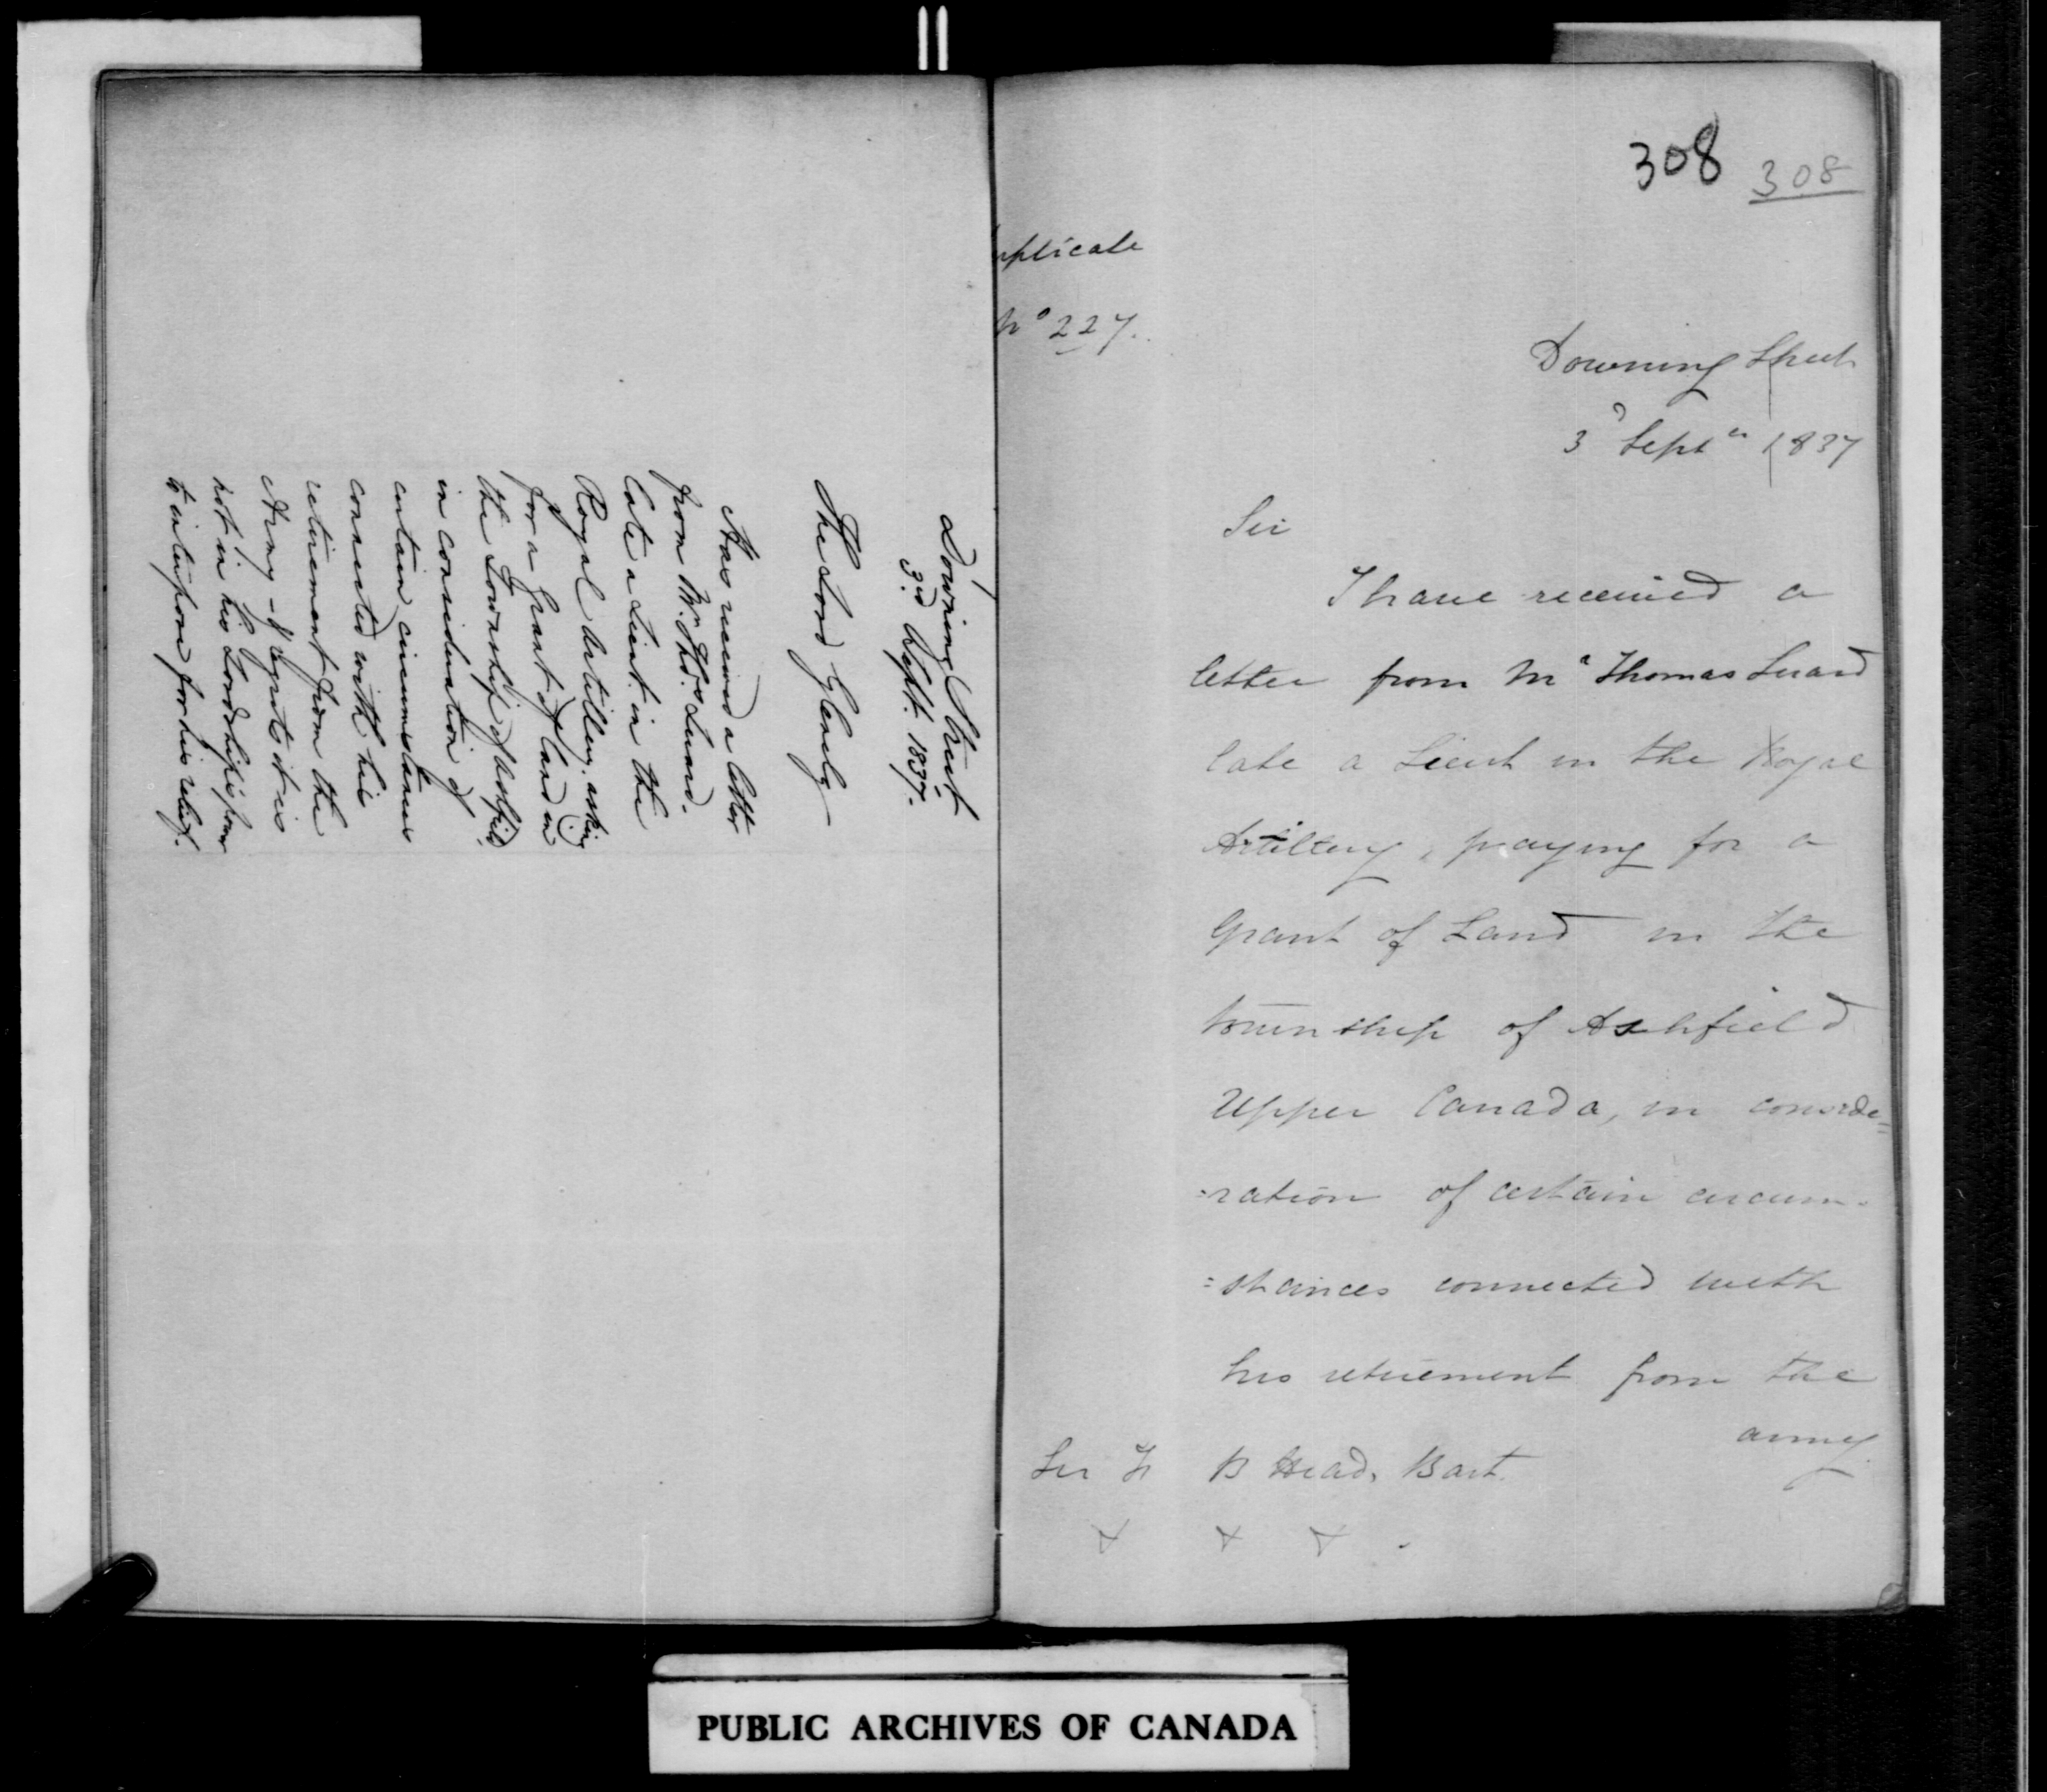 Downing Street
3rd Sept. 1837.
The Lord Glenelg
Has received a letter
from Mr. Thos. Luard.
late a Lieut. in the
Royal Artillery. asking
for a Grant of land in
the Township of Ashfield
in consideration of
certain circumstances
connected with his
retirement from the
Army - & regrets it is
not in his Lordship's power
to interpose for his relief.
308 308
uplicate
No 227.
Downing Street
3d Septr 1837
Sir
I have received a
letter from Mr Thomas Luard
late a Lieut in the Royal
Artillery, praying for a
Grant of Land in the
township of Ashfield
Upper Canada, in conside=
=ration of certain circum-
=stances connected with
his retirement from the
army
Sir F B Head, Bart.
& & & .
PUBLIC ARCHIVES OF CANADA